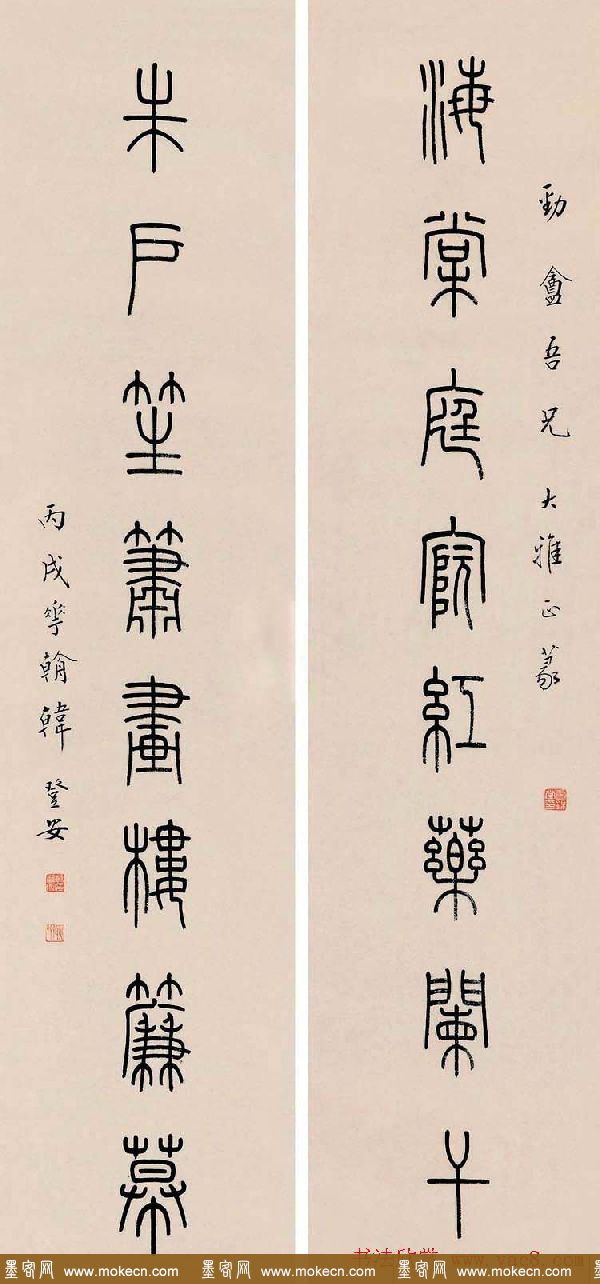 勁盦吾兄大雅正篆
海棠庭院紅藥闌干
朱戶笙簫畫樓簾幕
丙戌 翰韓登安
书法欣赏 www.yac8.com
墨客网 www.mokecn.com 墨客网 www.mokecn.com 墨客网 www.mokecn.com